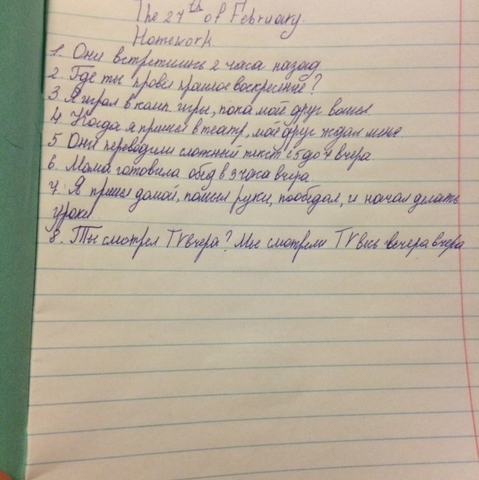 The 27th of February
Homework
1 Они встретились 2 часа назад
2 Где ты провел прошлое воскресение?
3 Я играл в комп. игры, пока мой друг вошел
4 Когда я пришел в театр, мой друг ждал меня
5 Они переводили сложный текст с 5 до 7 вчера
6. Мама готовила обед в 3 часа вчера
7. Я пришел домой, помыл руки, пообедал, и начал делать
уроки
8. Ты смотрел TV вчера? Мы смотрели TV весь вечера вчера